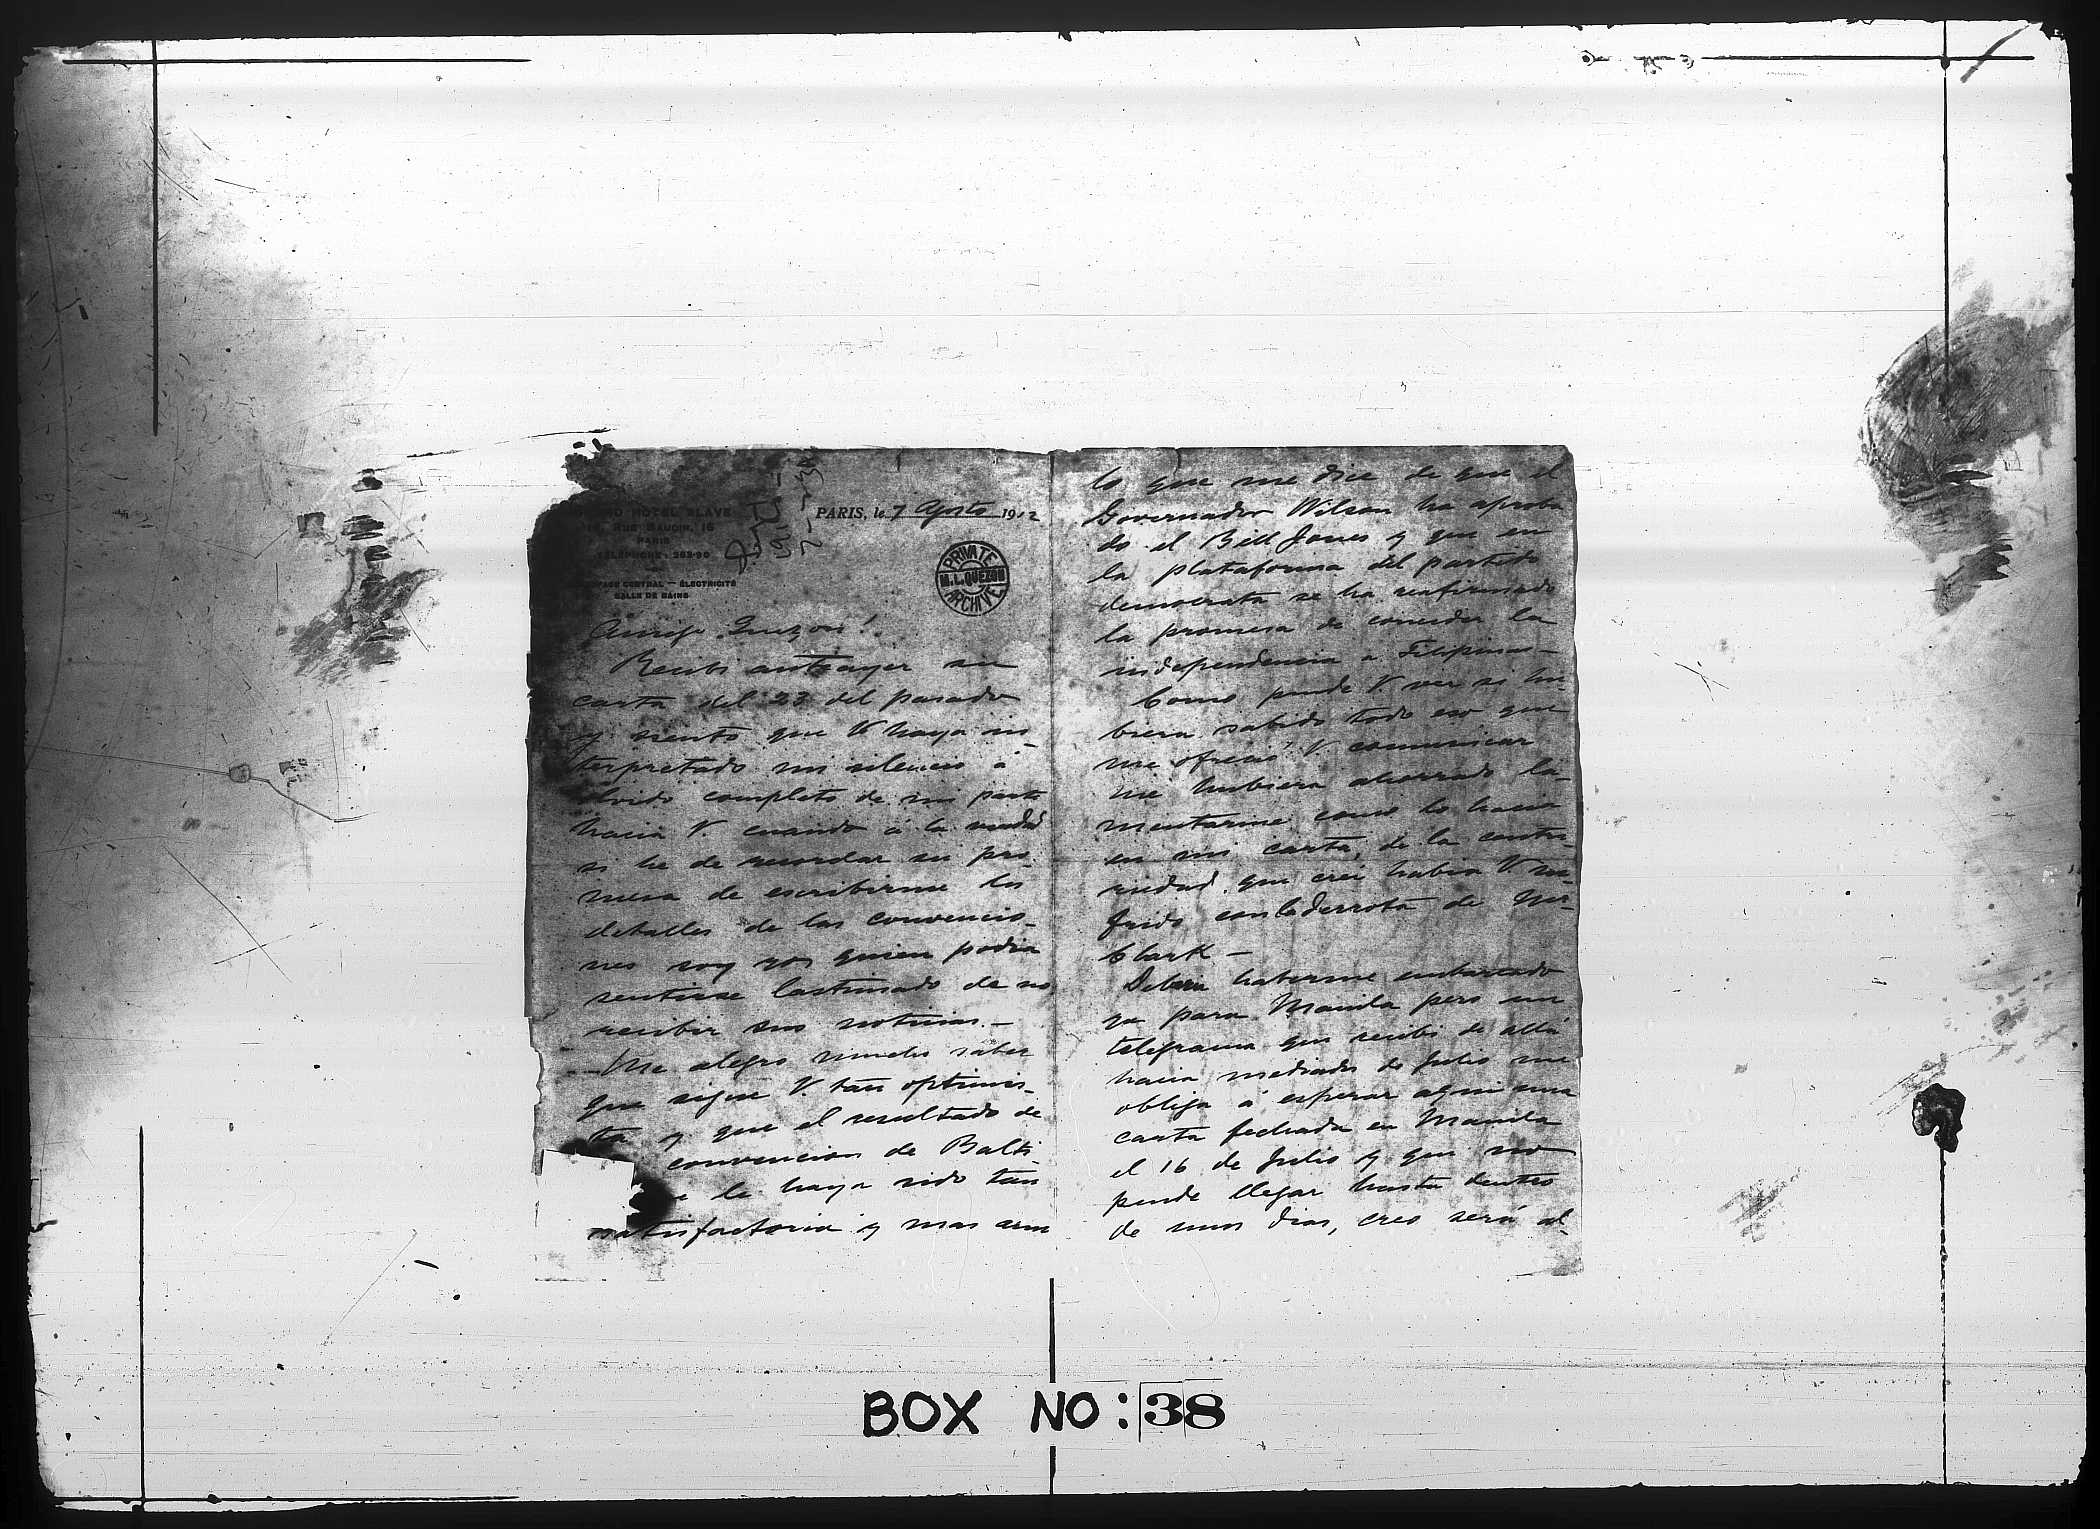 HOTEL SLAVE
RUE BAUDIN, 16
PARIS
TÉLÉPHONE: 263-90
CENTRAL — ÉLECTRICITÉ
SALLE DE BAINS
PARIS, le 7 Agosto 1912
PRIVATE
M.L. QUEZON
ARCHIVE
Amigo Quezon!
Recibi antrayer su
carta del 23 del pasado
y siento que V. haya in-
terpretado mi silencio á
olvido completo de mi parte
hacia V. cuando á la verdad
si he de recordar su pro-
mesa de escribirme los
detalles de las convencio-
nes soy yo quien podia
sentirse lastimado de no
recibir sus noticias.—
Me alegro mucho saber
que sigue V. tan optimis-
ta y que el resultado de
convencion de Balti-
le haya sido tan
satisfactoria y mas aun
lo que me dice de que el
Governador Wilson ha aproba
do el Bill Jones y que en
la plataforma del partido
democrata se ha reafirmado
la promesa de conceder la
independencia a Filipinas—
Como puede V. ver si hu-
biera sabido todo eso que
me ofreció V. comunicar
me hubiera ahorrado la-
mentarme como lo hacia
en mi carta, de la contra-
riedad que crei habia V. su-
frido con la derrota de Mr.
Clark—
Deberia haberme embarcado
ya para Manila pero un
telegrama que recibi de allá
hacia mediados de Julio me
obliga á esperar aqui una
carta fechada en Manila
el 16 de Julio y que no
puede llegar hasta dentro
de unos dias, creo será al-
BOX NO: 38